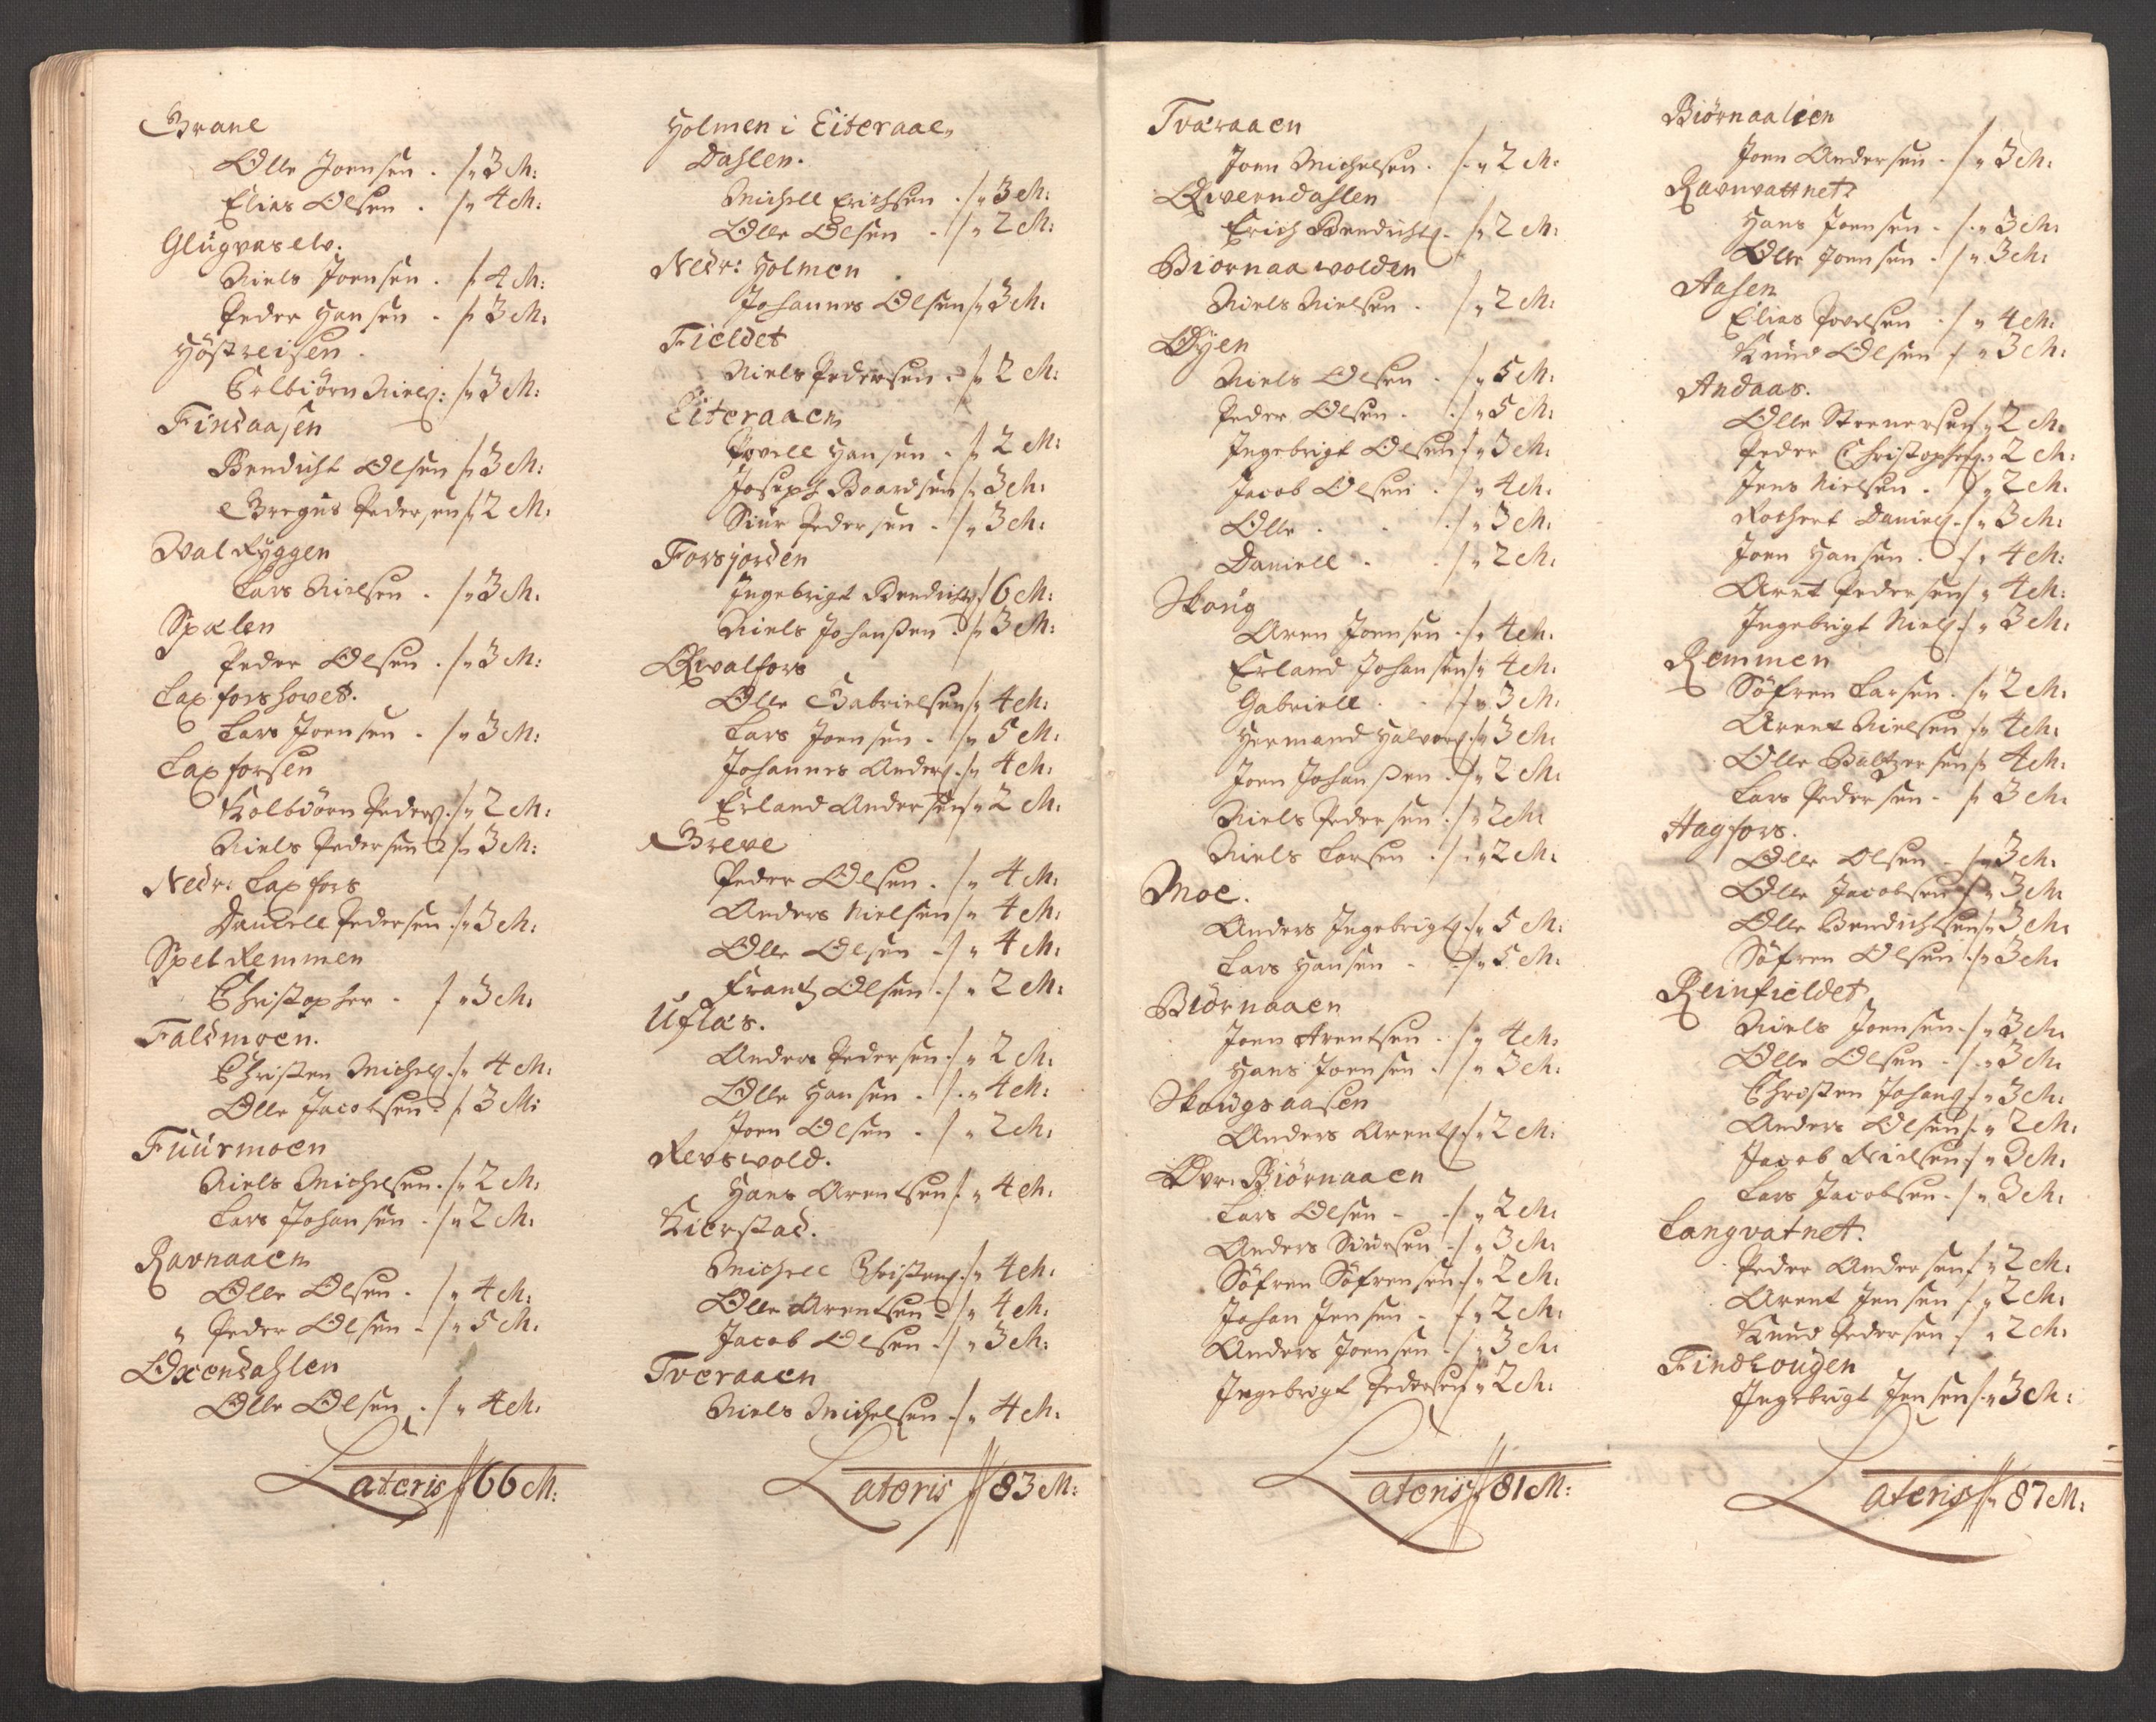 Grane
Olle Joensen . /" 3 M:
Elias Olsen . /" 4 M:
Glugvaselv.
Niels Joensen . /" 4 M:
Peder Hansen . /" 3 M:
Höstreisen.
Eelbiörn Niels: /" 3 M:
Findaasen
Bendicht Olsen /" 3 M:
Gregus Pedersen /" 2 M:
Walryggen
Lars Nielsen . /" 3 M:
Spælen
Peder Olsen . /" 3 M:
Laxforshovet.
Lars Joensen . /" 3 M:
Laxforsen
Kolbiörn Peders: /" 2 M:
Niels Pedersen /" 3 M:
Nedr: Laxfors
Daniell Pedersen /" 3 M:
Spelremmen
Christopher . /" 3 M:
Faldmoen.
Christen Michels: /" 4 M:
Olle Jacobsen /" 3 M:
Fuurmoen
Niels Michelsen . /" 2 M:
Lars Johansen . /" 2 M:
Ravnaaen
Olle Olsen . /" 4 M:
" Peder Olsen . /" 5 M:
Oxendahlen
Olle Olsen . /" 4 M:
Lateris // 66 M:
Holmen i Eiteraae,
Dahlen.
Michell Erichsen . /" 3 M:
Olle Olsen . /" 2 M:
Nedr: Holmen
Johannes Olsen /" 3 M:
Fieldet
Niels Pedersen . /" 2 M:
Eiteraaen
Povell Hansen . /" 2 M:
Joseph Baardsen /" 3 M:
Siur Pedersen . /" 3 M:
Forsjorden
Ingebrigt Bendichts: / 6 M:
Niels Johanßen . /" 3 M:
Qwalfors
Olle Gabrielsen /" 4 M:
Lars Joensen . /" 5 M:
Johannes Anders: /" 4 M:
Erland Andersen /" 2 M:
Greve
Peder Olsen . /" 4 M:
Anders Nielsen /" 4 M:
Olle Olsen . /" 4 M:
Frantz Olsen . /" 2 M:
Uflas.
Anders Pedersen . /" 2 M:
Olle Hansen . /" 4 M:
Joen Olsen . /" 2 M:
Revswold.
Hans Arentsen /" 4 M:
Kierstad.
Michell Christens: /" 4 M:
Olle Arentsen /" 4 M:
Jacob Olsen . /" 3 M:
Tveraaen
Niels Michelsen . /" 4 M:
Lateris // 83 M:
Tværaaen
Joen Michelsen . /" 2 M:
Qwerndahlen
Erich Bendichts: /" 2 M:
Biornaawolden
Niels Nielsen . /" 2 M:
Øyen
Niels Olsen . /" 5 M:
Peder Olsen . /" 5 M:
Ingebrigt Olsen /" 3 M:
Jacob Olsen . /" 4 M:
Olle . . /" 3 M:
Daniell . . /" 2 M:
Skoug
Aren Joensen . /" 4 M:
Erland Johansen /" 4 M:
Gabriell . . /" 3 M:
Hermand Halvors: /" 3 M:
Joen Johanßen . /" 2 M:
Niels Pedersen . /" 2 M:
Niels Larsen . /" 2 M:
Moe.
Anders Ingebrigts: /" 5 M:
Lars Hansen . /" 5 M:
Biörnaaen
Joen Arentsen . /" 4 M:
Hans Joensen . /" 3 M:
Skougsaasen
Anders Arents: /" 2 M:
Ovr: Biörnaaen
Lars Olsen . . /" 2 M:
Anders Siursen . /" 3 M:
Söfren Söfrensen . /" 2 M:
Johan Jensen . /" 2 M:
Anders Joensen . /" 3 M:
Ingebrigt Pedersen /" 2 M:
Lateris // 81 M:
Biörnaalien
Joen Andersen . /" 3 M:
Ravnvattnet
Hans Joensen . /" 3 M:
Olle Joensen . /" 3 M:
Aasen
Elias Povelsen . /" 4 M:
Knud Olsen /" 3 M:
Andaas.
Olle Steenersen /" 2 M:
Peder Christophers: /" 2 M:
Jens Nielsen . /" 2 M:
Rothert Daniels: /" 3 M:
Joen Hansen . /" 4 M:
Arnt Pedersen /" 4 M:
Ingebrigt Niels: /" 3 M:
Remmen
Söfren Larsen . /" 2 M:
Arent Nielsen /" 4 M:
Olle Baltzersen /" 4 M:
Lars Pedersen . /" 3 M:
Hagfors.
Olle Olsen . /" 3 M:
Olle Jacobsen /" 3 M:
Olle Bendichtsen /" 3 M:
Söfren Olsen . /" 3 M:
Reinfieldet
Niels Joensen . /" 3 M:
Olle Olsen . /" 3 M:
Christen Johans: /" 3 M:
Anders Olsen . /" 2 M:
Jacob Nielsen . /" 3 M:
Lars Jacobsen . /" 3 M:
Langvatnet.
Peder Andersen /" 2 M:
Arent Jensen . /" 2 M:
Knud Pedersen . /" 2 M:
Findhougen
Ingebrigt Jensen /" 3 M:
Lateris // 87 M: